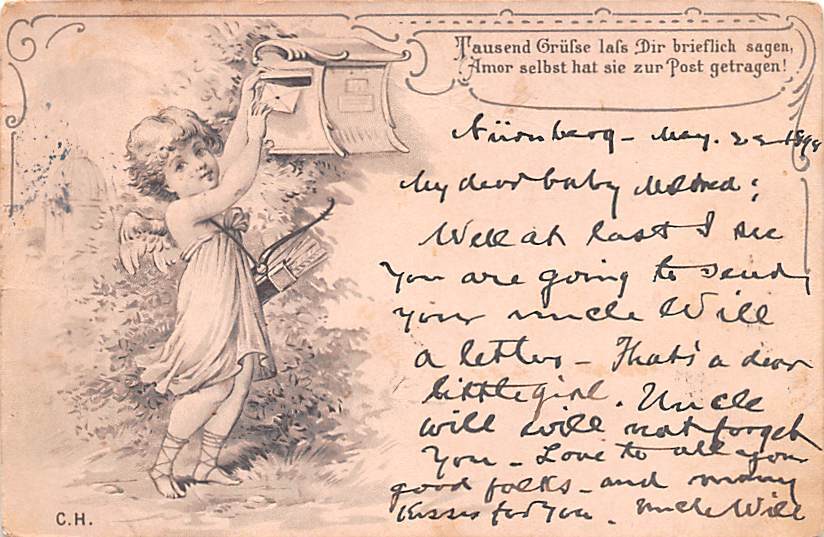 Tausend Grüſse laſs Dir brieflich sagen,
Amor selbst hat sie zur Post getragen!
Nürnberg - May. 22 1899
My dear baby Mildred;
Well at last I see
you are going to send
your uncle Will
a letter - That's a dear
little girl. Uncle
will will not forget
You - Love to all your
good folks - and many
Kisses for You. Uncle Will
C.H.